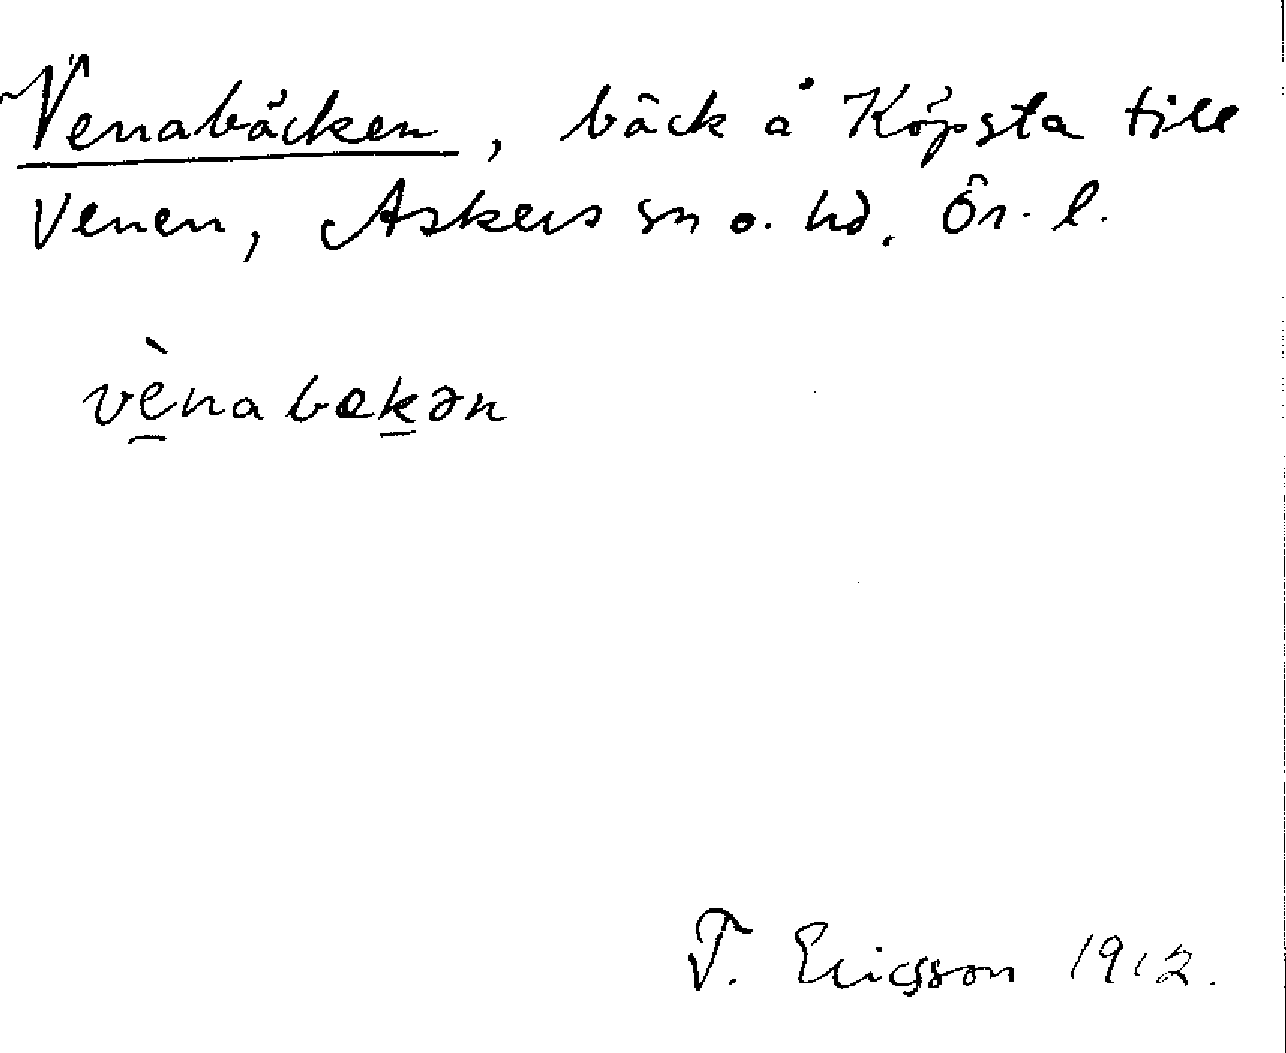 Venabäcken, bäck å Köpsta till
Venen, Askers sn o. hd. Ör. l.
vè̱nabæḵən
T. Ericsson 1912.